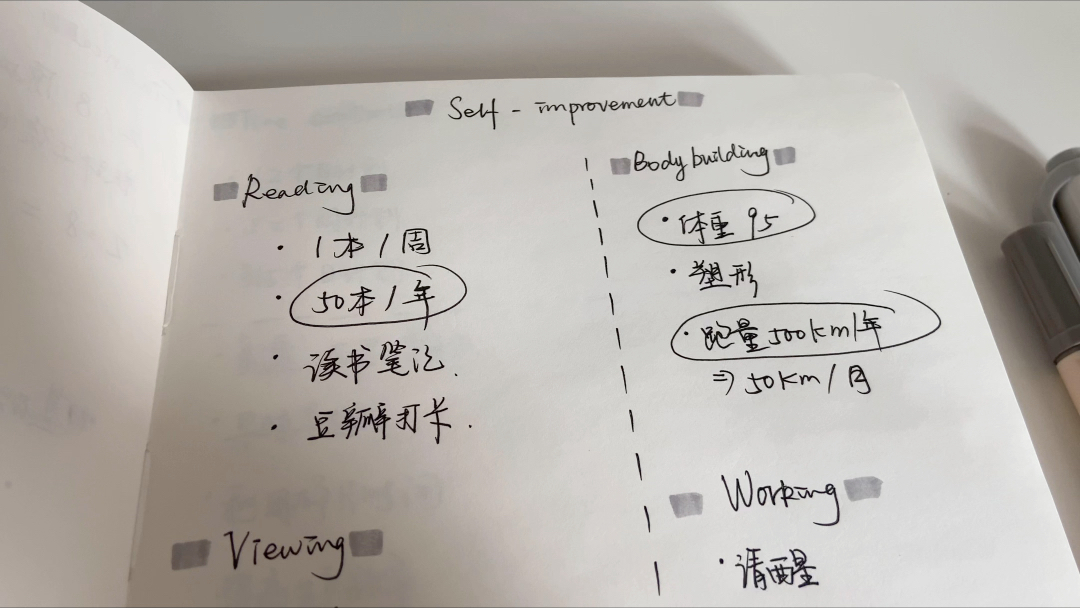 Self-improvement
Reading
· 1本/1周
· 50本/1年
· 读书笔记.
· 豆瓣打卡.
Viewing
Body building
· 体重 95
· 塑形
· 跑量 500km/年
⇒ 50km/月
Working
· 清醒